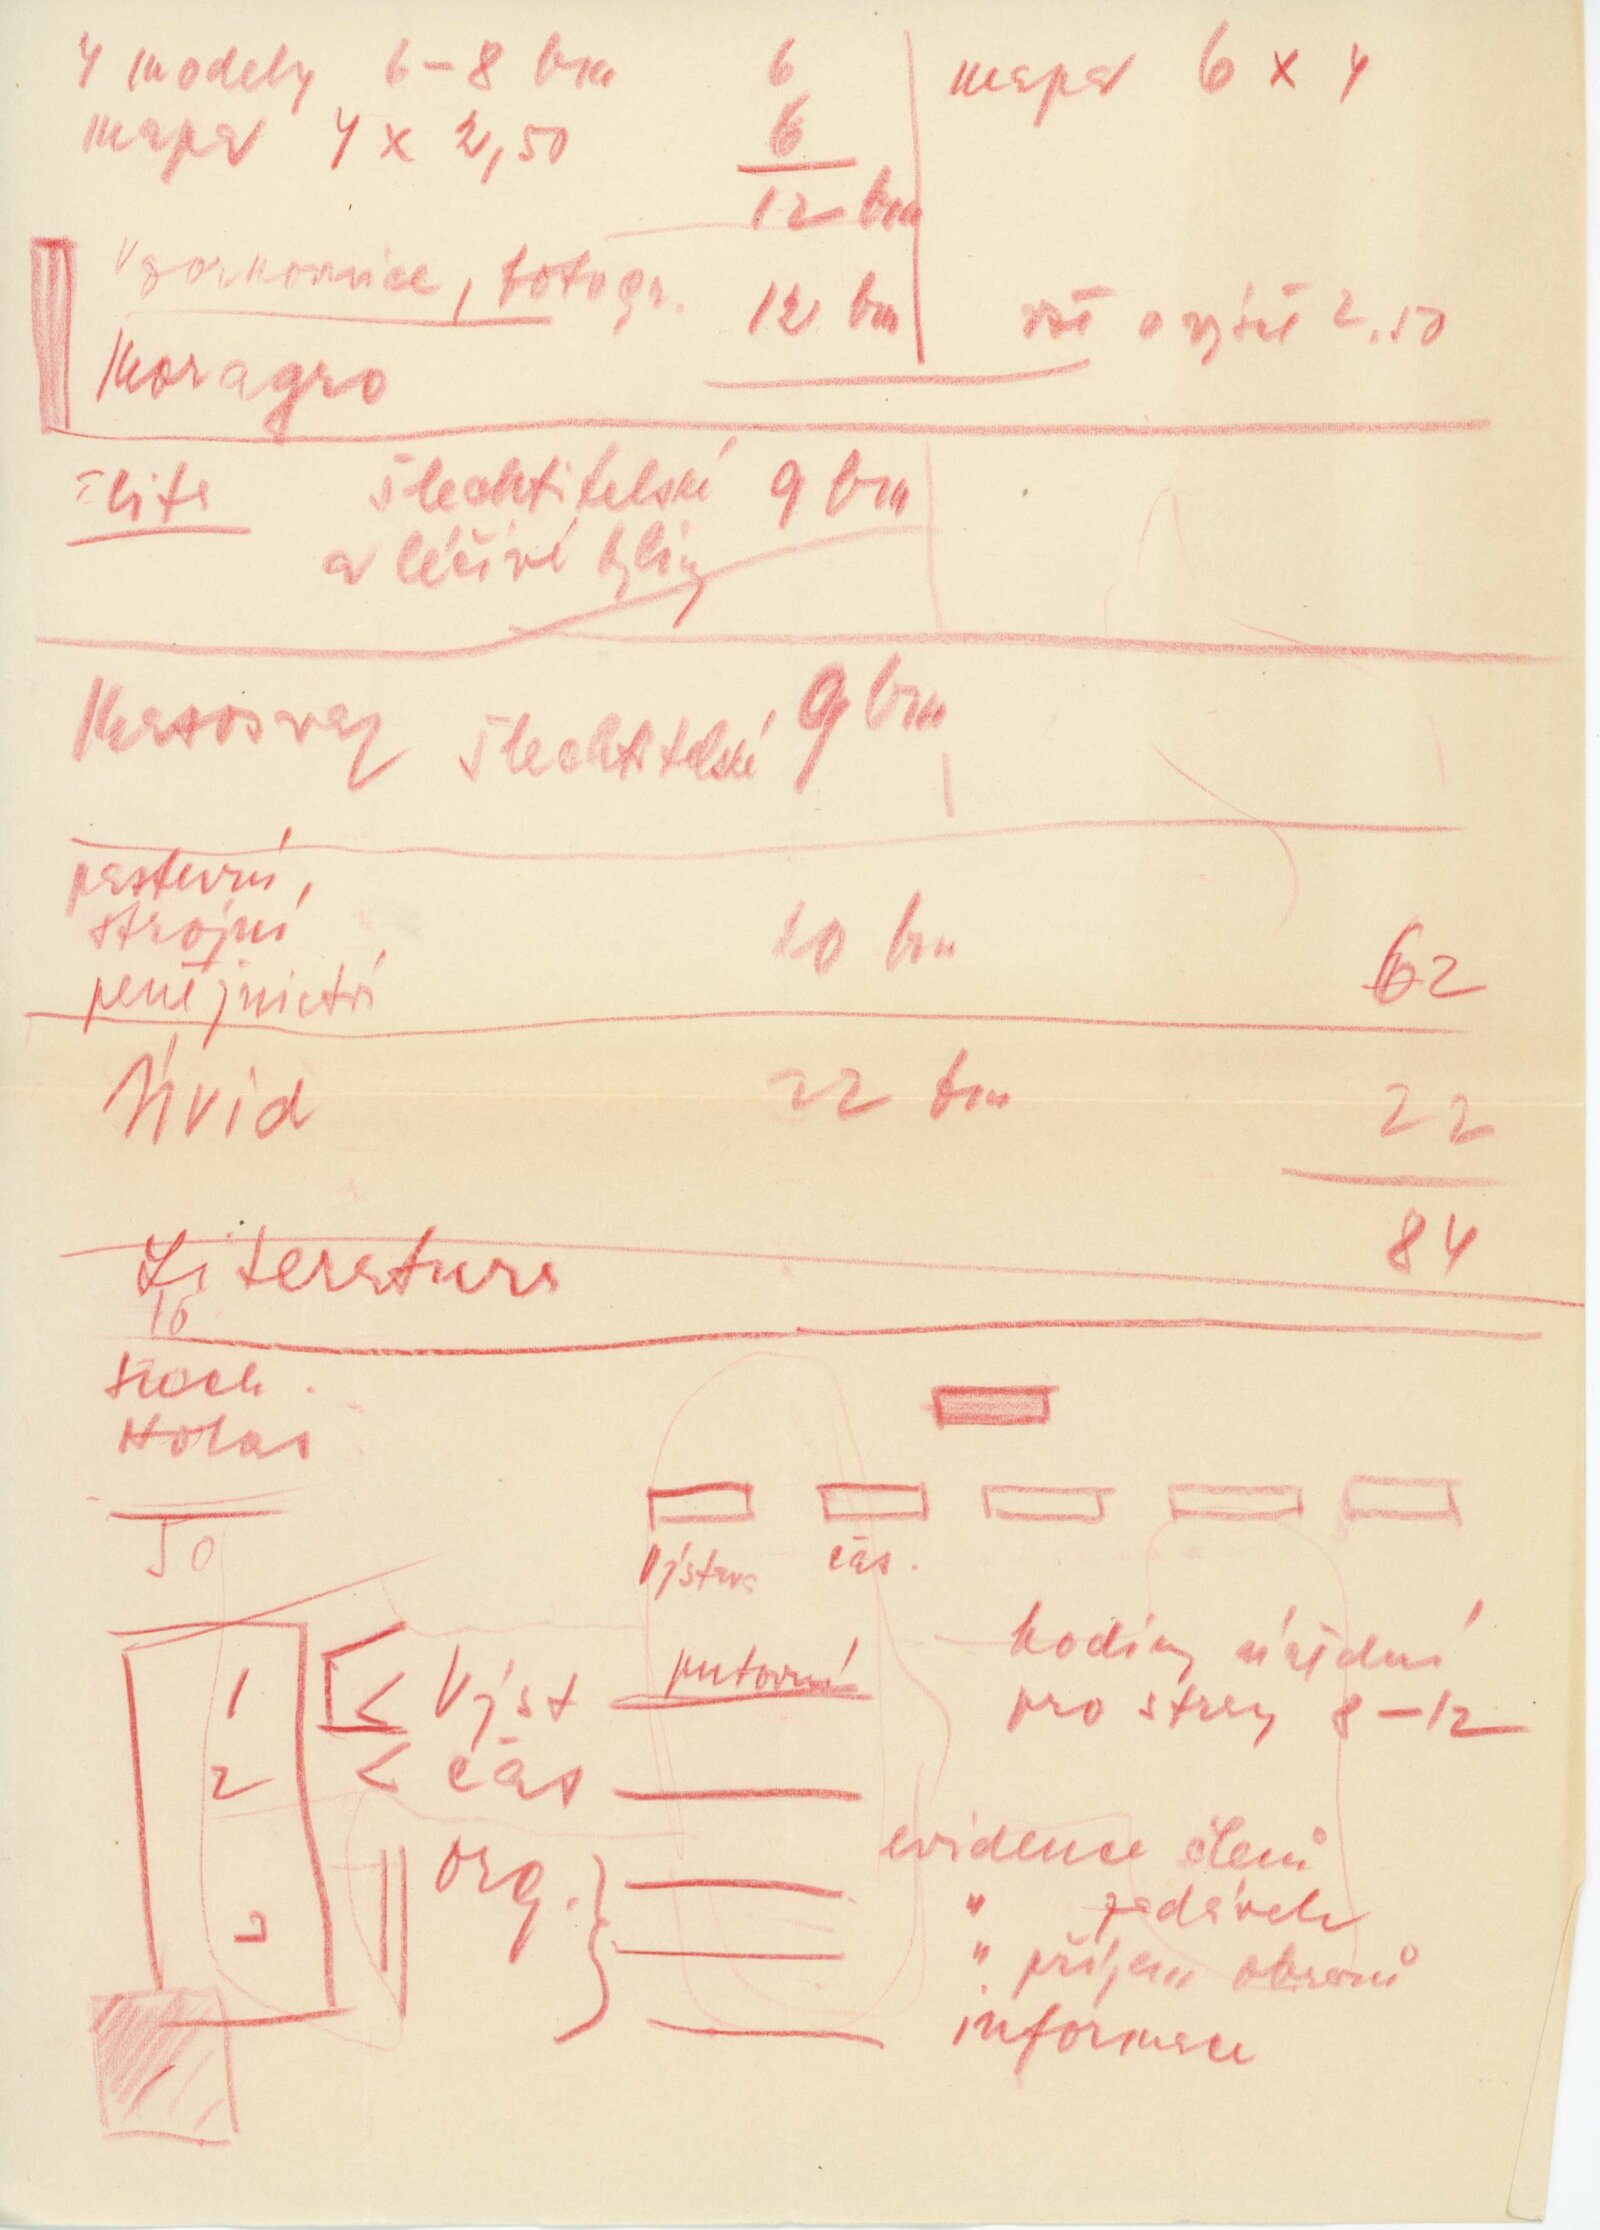 4 modely 6-8 bm 6 mapa 6 x 4
mapa 4 x 2,50 6
12 bm
Vzorkovnice, fotogr. 12 bm vše o výši 2.50
Moragro
Elita šlechtitelské 9 bm
a léčivé byliny
Masosvaz šlechtitelské 9 bm
pastevní,
strojní 20 bm 62
peněžnictví
Úvid 22 bm 22
84
Literatura
16
Holas
50
Výstava čas.
hodiny úřední
1 < Výst putovní pro strany 8-12
2 < čas
evidence členů
org.
" zadávek
" příjem obrazů
informace